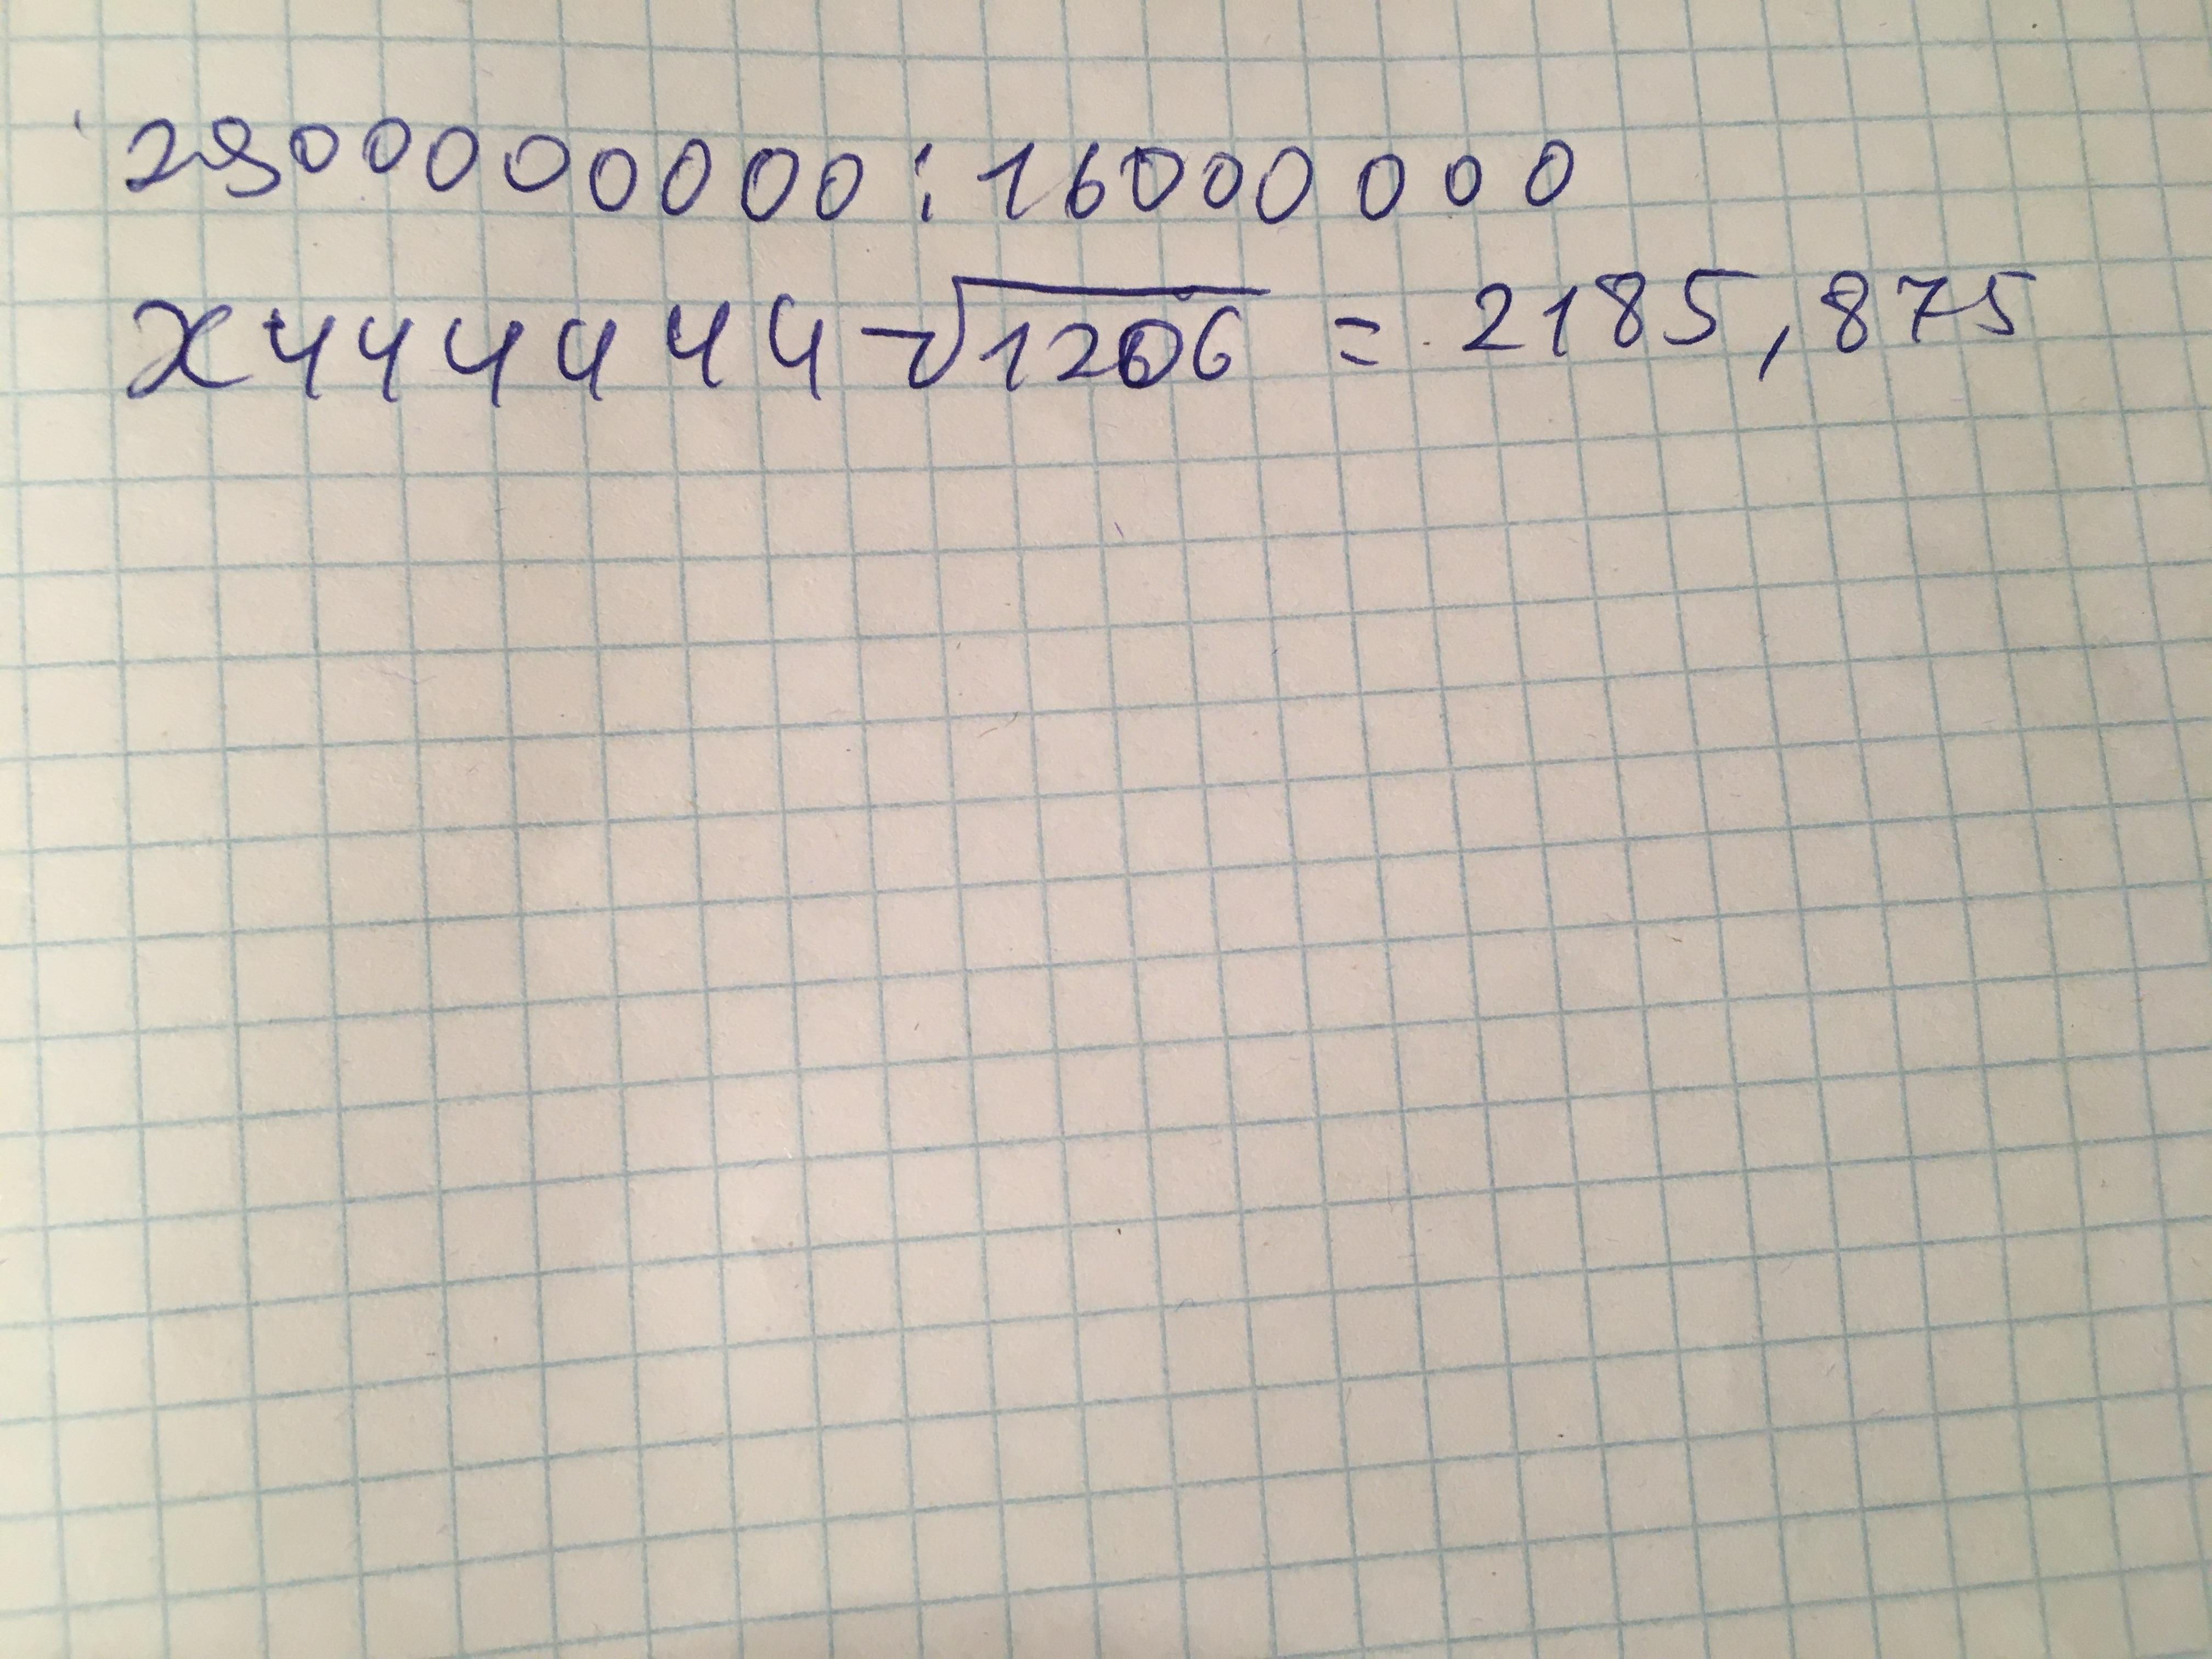 2900000000:16000000
x444444-√1206 = 2185,875